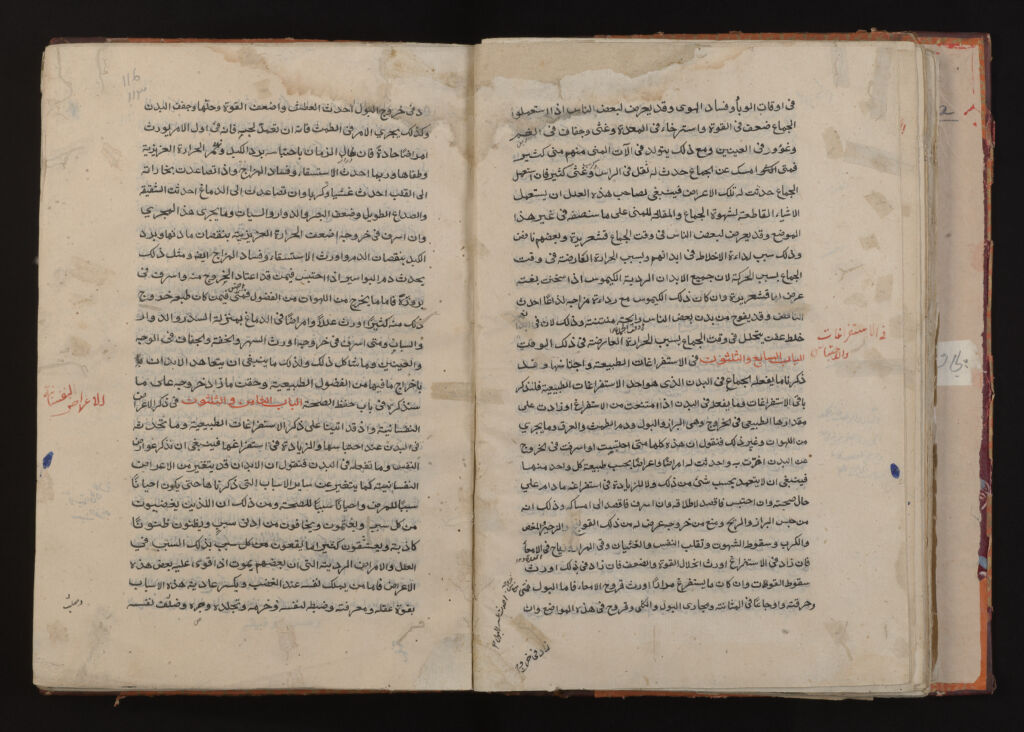 في اوقات الوبا وفساد الهوى وقد يعرض لبعض الناس اذا استعملوا
الجماع ضعف في القوة واسترخاء في المعدة وغثى وجفاف في الفم
وغؤور في العينين ومع ذلك يتولد في الآن المنى منهم منى كثير
فمتى امسك عن الجماع حدث له ثقل في الراس وغثى كثير فان استعمل
الجماع حدثت له تلك الاعراض فينبغي لصاحب هذه العلة ان يستعمل
الاشياء القاطعة لشهوة الجماع والمقللة للمنى على ما سنصفه في غير هذا
الموضع وقد يعرض لبعض الناس في وقت الجماع قشعريرة وبعضهم نافض
وذلك سبب لرداءة الاخلاط في ابدانهم وبسبب الحرارة العارضة في وقت
الجماع بسبب الحركة لان جميع الابدان الردية الكيموس اذا سخنت بغتة
عرض لها قشعريرة وان كان ذلك الكيموس مع رداءة مزاجه لذاعا احدث
النافض وقد يفوح من بدن بعض الناس رايحة منتنة وذلك لان في
خلط عفن يتحلل في وقت الجماع بسبب الحرارة العارضة في ذلك الوقت
الباب السابع والثلثون في الاستفراغات الطبيعية واحتباسها وقد
ذكرنا ما يفعل الجماع في البدن الذي هو احد الاستفراغات الطبيعية فلنذكر
باقي الاستفراغات وما يفعل في البدن اذا امتنعت من الاستفراغ او زادت على
مقدارها الطبيعي في الخروج وهي البراز والبول ودم الطمث والعرق وما يجري
من اللهوات وغير ذلك فنقول ان هذه كلها متى احتبست او اسرفت في الخروج
عن البدن اضرت به واحدثت له امراضا واعراضا بحسب طبيعة كل واحد منها
فينبغي ان لا يتعمد بحبس شيء من ذلك ولا للزيادة في استفراغه ما دام على
حال صحته وان احتبس فاقصد لاطلاقه وان اسرف فاقصد الى امساكه وذلك انه
من حبس البراز والريح ومنع من خروجه عرض له من ذلك القولنج والزحير والمغص
والكرب وسقوط الشهوة وتقلب النفس والغثيان وفي المرابه رياح في الامعا
فان زاد في الاستفراغ اورث انحلال القوة والضعف فان زاد في ذلك اورث
سقوط القوة وان كان ما يستفرغ مرارا اورث قروح الامعا فاما البول فمتى
وحرقته واوجاعا في المثانة ومجاري البول والكلى وقروح في هذه المواضع وان
زاد في خروج
في الاستفراغات
والاحتباس
116
113
د في خروج البول احدث العطش واضعف القوة وحلها وجفف البدن
وكذلك يجري الامر في الطمث فانه ان تعمد لحبسه فان في اول الامر يورث
امراضا حادة فان طال الزمان باحتباسه برد الكبد وغمر الحرارة الغريزية
وطفاها وربما احدث الاستسقا وفساد المزاج واذا تصاعدت بخاراته
الى القلب احدث غشيا وكربا وان تصاعدت الى الدماغ احدثت الشقيقة
والصداع الطويل وضعف البصر والدوار والسبات وما يجري هذا المجرى
وان اسرف في خروجه اضعف الحرارة الغريزية بنقصان مادتها وبرد
الكبد بنقصان الدم واورث الاستسقا وفساد المزاج ايضا ومثل ذلك
يحدث دم البواسير اذا احتبس فيمن قد اعتاد الخروج منه واسرف في
بروزه فاما ما يخرج من اللهوات من الفضول فمتى فيمن كان طبعه خروج
ذلك منه كثيرا اورث عللا وامراضا في الدماغ بمنزلة السدر والدوار
والسبات ومتى اسرف في خروجه اورث السهر والخفة وجفاف في الوجه
والعينين وما شاكل ذلك ولذلك ما ينبغي ان يتعاهد الابدان
باخراج ما فيها من الفضول الطبيعية وحفظ ماذا خروجه على ما
سنذكره في باب حفظ الصحة الباب الثامن والثلثون في ذكر الاعراض
النفسانية واذ قد اتينا على ذكر الاستفراغات الطبيعية وما يحدث
في البدن عند احتباسها والزيادة في استفراغها فينبغي ان نذكر عوارض
النفس وما تفعله في البدن فنقول ان الابدان قد يتغير من الاعراض
النفسانية كما يتغير عن ساير الاسباب التي ذكرناها حتى يكون احيانا
سببا للمرض واحيانا سببا للصحة ومن ذلك ان الذين يغضبون
من كل سبب ويغتمون ويخافون من ادنى سبب ويظنون ظنونا
كاذبة ويعشقون كثيرا ما يقعون من كل سبب بذلك السبب في
العلل والامراض الردية التي ان بعضهم يموت اذا اقوى عليه بعض هذه
الاعراض فاما من يملك نفسه عند الغضب ويكسر عادية هذه الاسباب
بقوة عقله ومعرفته وضبطه لنفسه وحزمه وتجلده وصرف نفسه
الاعراض النفسانية